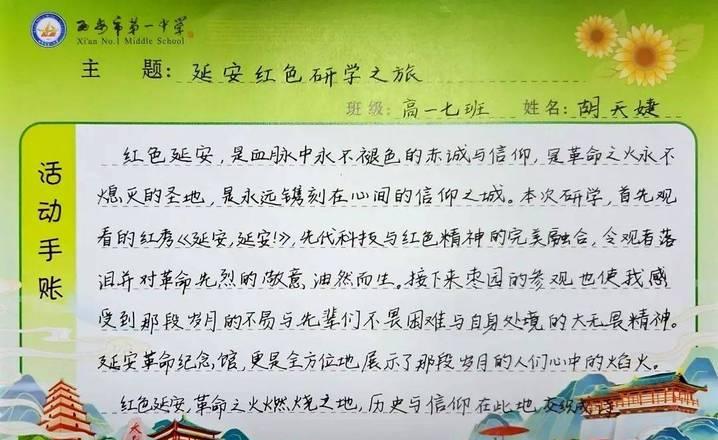 西安市第一中学
Xi'an No.1 Middle School
主 题: 延安红色研学之旅
班级: 高一七班 姓名: 胡天婕
活动手账
红色延安，是血脉中永不褪色的赤诚与信仰，是革命之火永不
熄灭的圣地，是永远镌刻在心间的信仰之城。本次研学，首先观
看的红秀《延安，延安!》，先代科技与红色精神的完美融合，令观者落
泪并对革命先烈的敬意油然而生。接下来枣园的参观也使我感
受到那段岁月的不易与先辈们不畏困难与自身处境的大无畏精神。
延安革命纪念馆，更是全方位地展示了那段岁月的人们心中的焰火。
红色延安，革命之火燃烧之地，历史与信仰在此地交织成诗